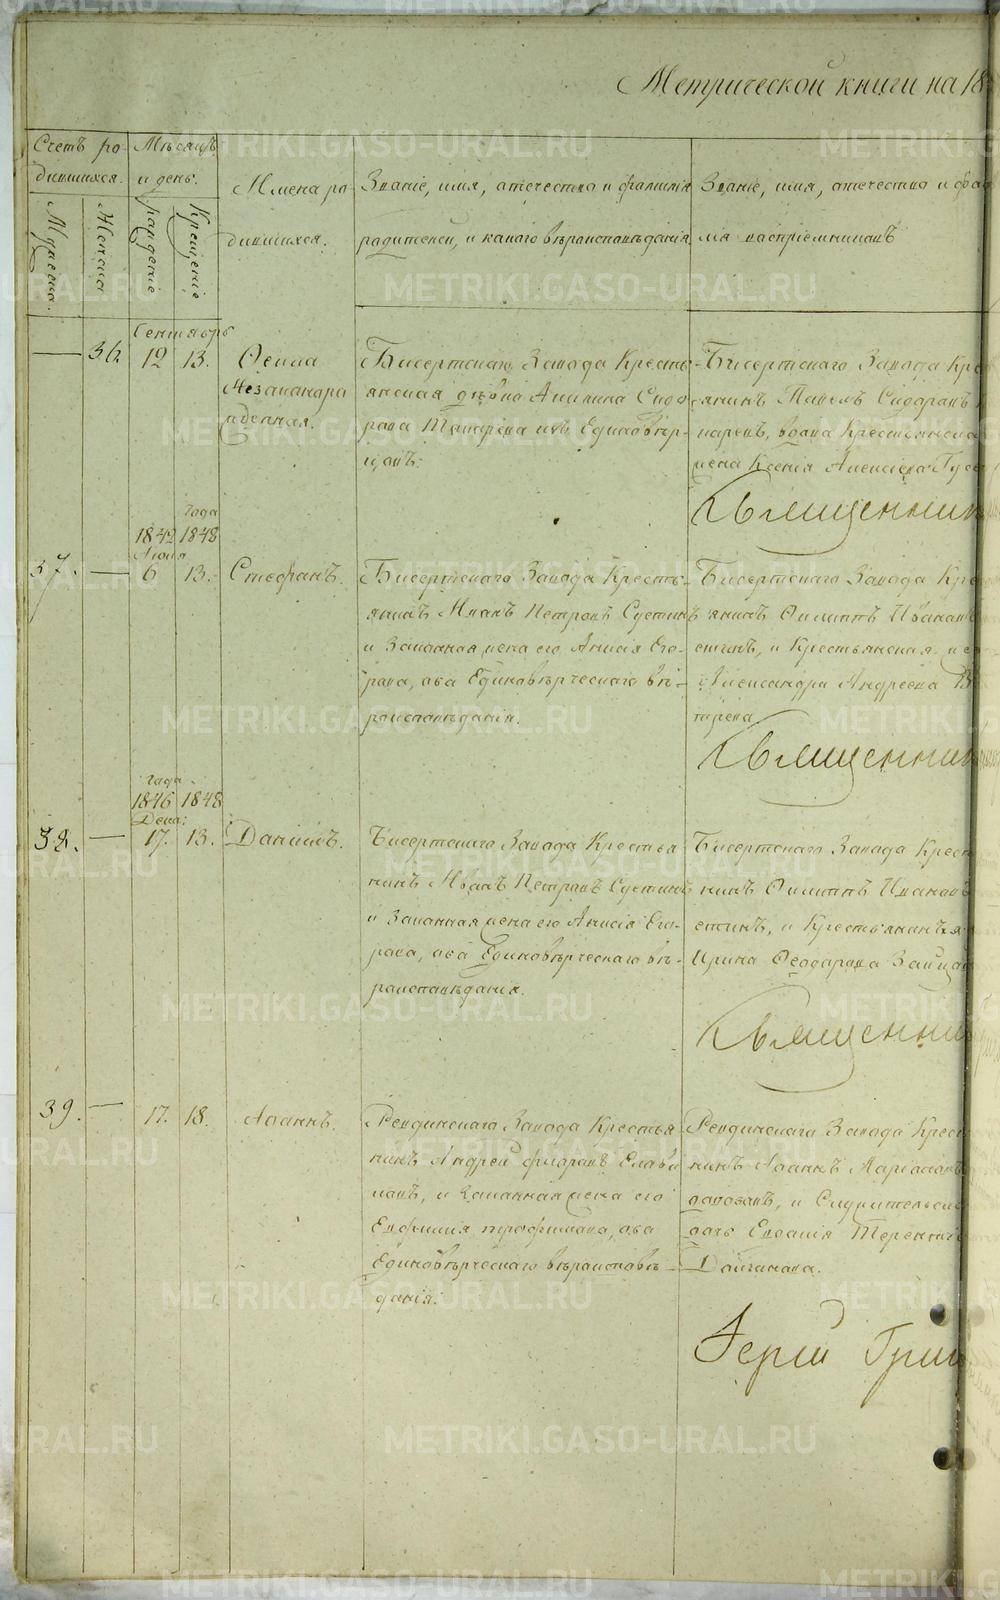 Метрической книги на 18
Счетъ ро-
дившихся.
Мѣсяцъ
и день.
Мужеска.
Женска
рожденіе
Крещеніе
Имена ро
дившихся.
Званіе, имя, отечество и фамилія
родителей, и какого вѣроисповѣданія.
Званіе, имя, отечество и фа
лія воспріемниковъ
Сентябрь
36. 12 13.
Незаконоро
жденная.
Бисертскаго Завода Кресть
янская дѣвка Акилина Сидо
рова Токарева изъ Единовѣр-
цовъ.
Бисертскаго Завода Кре
янинъ Сидоровъ
вдова Крестьянска
жена Ксенія Алексѣева
Священник
Года
1842 1848
37. 6 13. Стефанъ.
Бисертскаго Завода Кресть-
янинъ Иванъ Петровъ Сустинъ
и Законная жена его Анисія Его-
рова, оба Единовѣрческаго вѣ-
роисповѣданія.
Бисертскаго Завода Кре
янинъ Филиппъ Иванов
стинъ, и Крестьянская же
Александра Андреева
Священник
года
1846 1848
Дека:
38. 17. 13. Даніилъ.
Бисертскаго Завода Крестья
нинъ Иванъ Петровъ Сустинъ
и Законная жена его Анисія Его-
рова, оба Единовѣрческаго вѣ-
роисповѣданія.
Бисертскаго Завода Крест
нинъ Филиппъ Ивановъ
стинъ, и
Ирина Феодорова
Священник
39. 17. 18. Іоаннъ.
Ревдинскаго Завода Крестья
нинъ Андрей Флоровъ
и Законная жена его
Евфимія оба
Единовѣрческаго вѣроисповѣ-
данія.
Ревдинскаго Завода Крест
нинъ Іоаннъ
и Служительск
дочь Евдокія Терентіе
Іерей Григ
METRIKI.GASO-URAL.RU